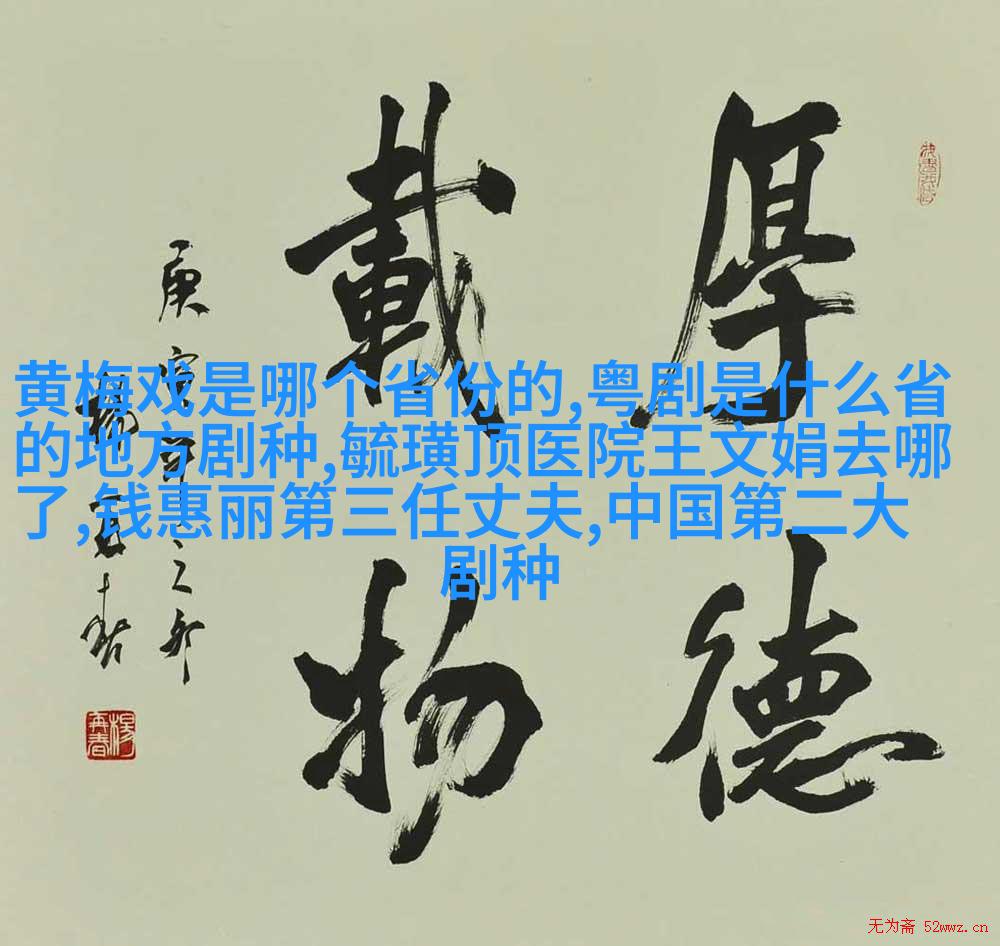 厚德
載物
庚寅
楊再春
楊再春
黄梅戏是哪个省份的,粤剧是什么省
的地方剧种,毓璜顶医院王文娟去哪
了,钱惠丽第三任丈夫,中国第二大
剧种
无为斋 52wwz.cn